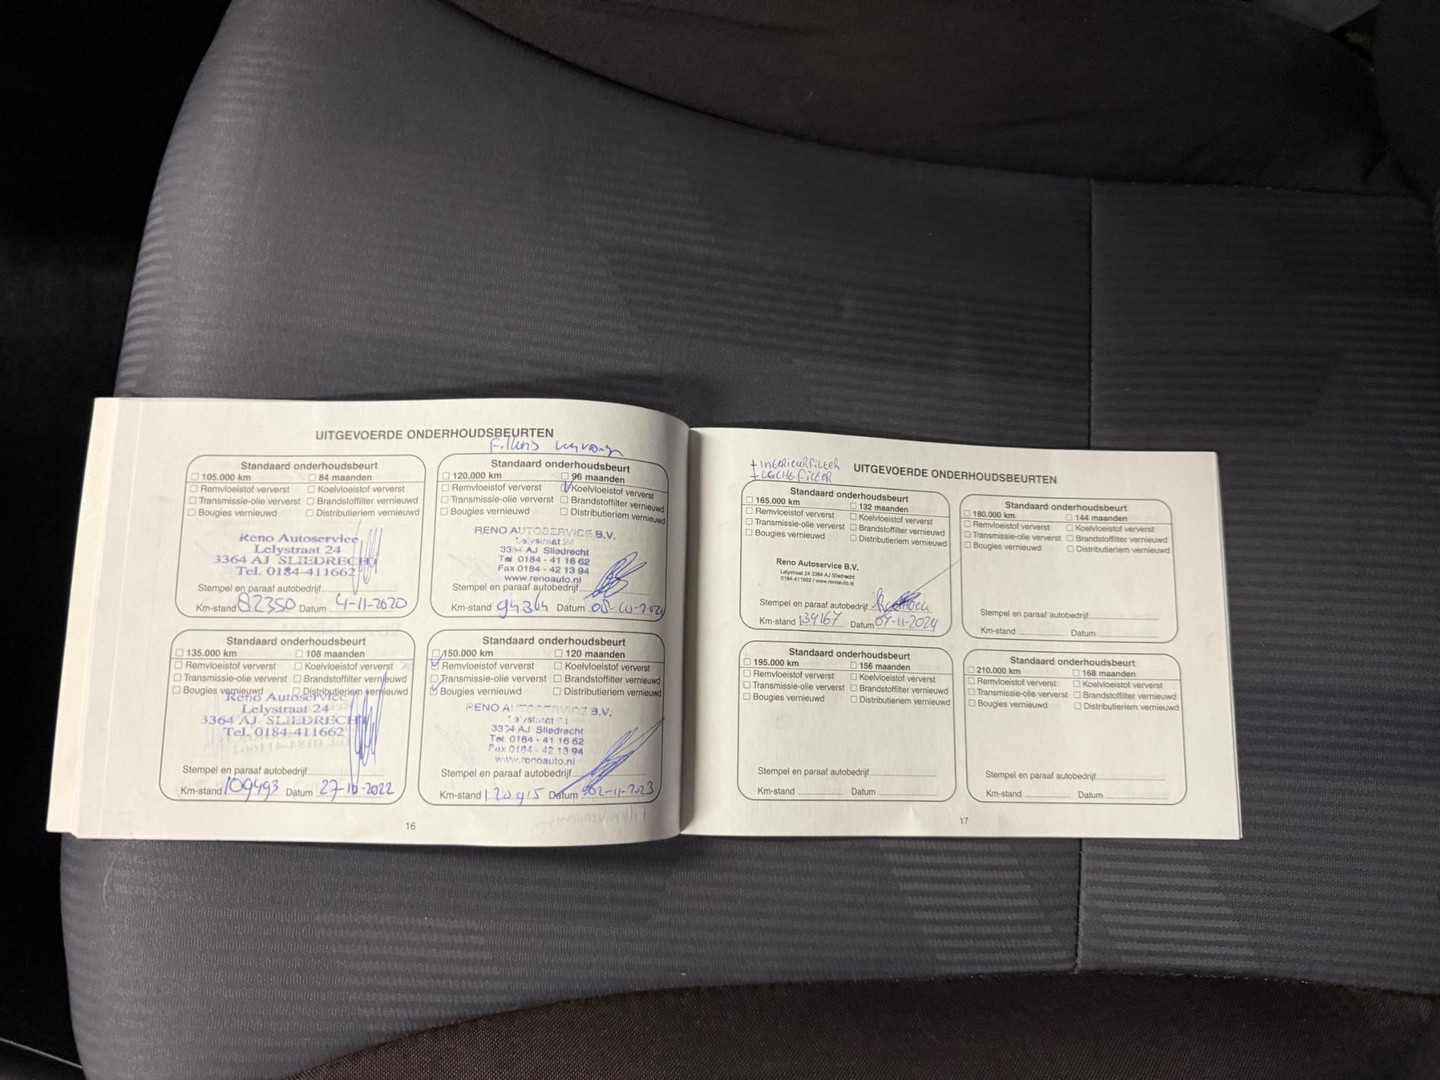 UITGEVOERDE ONDERHOUDSBEURTEN
Filters vervangen
Standaard onderhoudsbeurt
☐ 105.000 km ☐ 84 maanden
☐ Remvloeistof ververst ☐ Koelvloeistof ververst
☐ Transmissie-olie ververst ☐ Brandstoffilter vernieuwd
☐ Bougies vernieuwd ☐ Distributieriem vernieuwd
Reno Autoservice
Lelystraat 24
3364 AJ SLIEDRECHT
Tel. 0184-411662
Stempel en paraaf autobedrijf
Km-stand 82350 Datum 4-11-2020
Standaard onderhoudsbeurt
☐ 120.000 km ☐ 96 maanden
☐ Remvloeistof ververst ☑ Koelvloeistof ververst
☐ Transmissie-olie ververst ☐ Brandstoffilter vernieuwd
☐ Bougies vernieuwd ☐ Distributieriem vernieuwd
RENO AUTOSERVICE B.V.
Lelystraat 24
3364 AJ Sliedrecht
Tel 0184 - 41 16 62
Fax 0184 - 42 13 94
www.renoauto.nl
Stempel en paraaf autobedrijf
Km-stand 94364 Datum
Standaard onderhoudsbeurt
☐ 135.000 km ☐ 108 maanden
☐ Remvloeistof ververst ☐ Koelvloeistof ververst
☐ Transmissie-olie ververst ☐ Brandstoffilter vernieuwd
☐ Bougies vernieuwd ☐ Distributieriem vernieuwd
Reno Autoservice
Lelystraat 24
3364 AJ SLIEDRECHT
Tel. 0184-411662
Stempel en paraaf autobedrijf
Km-stand 109493 Datum 27-10-2022
Standaard onderhoudsbeurt
☐ 150.000 km ☐ 120 maanden
☑ Remvloeistof ververst ☐ Koelvloeistof ververst
☐ Transmissie-olie ververst ☐ Brandstoffilter vernieuwd
☑ Bougies vernieuwd ☐ Distributieriem vernieuwd
RENO AUTOSERVICE B.V.
Lelystraat 24
3364 AJ Sliedrecht
Tel 0184 - 41 16 62
Fax 0184 - 42 13 94
www.renoauto.nl
Stempel en paraaf autobedrijf
Km-stand 120915 Datum 02-11-2023
16
+ INTERIEURFILTER
+ LUCHTFILTER
UITGEVOERDE ONDERHOUDSBEURTEN
Standaard onderhoudsbeurt
☐ 165.000 km ☐ 132 maanden
☐ Remvloeistof ververst ☐ Koelvloeistof ververst
☐ Transmissie-olie ververst ☐ Brandstoffilter vernieuwd
☐ Bougies vernieuwd ☐ Distributieriem vernieuwd
Reno Autoservice B.V.
Lelystraat 24 3364 AJ Sliedrecht
0184-411662 / www.renoauto.nl
Stempel en paraaf autobedrijf
Km-stand 134167 Datum 07-11-2024
Standaard onderhoudsbeurt
☐ 180.000 km ☐ 144 maanden
☐ Remvloeistof ververst ☐ Koelvloeistof ververst
☐ Transmissie-olie ververst ☐ Brandstoffilter vernieuwd
☐ Bougies vernieuwd ☐ Distributieriem vernieuwd
Stempel en paraaf autobedrijf
Km-stand Datum
Standaard onderhoudsbeurt
☐ 195.000 km ☐ 156 maanden
☐ Remvloeistof ververst ☐ Koelvloeistof ververst
☐ Transmissie-olie ververst ☐ Brandstoffilter vernieuwd
☐ Bougies vernieuwd ☐ Distributieriem vernieuwd
Stempel en paraaf autobedrijf
Km-stand Datum
Standaard onderhoudsbeurt
☐ 210.000 km ☐ 168 maanden
☐ Remvloeistof ververst ☐ Koelvloeistof ververst
☐ Transmissie-olie ververst ☐ Brandstoffilter vernieuwd
☐ Bougies vernieuwd ☐ Distributieriem vernieuwd
Stempel en paraaf autobedrijf
Km-stand Datum
17